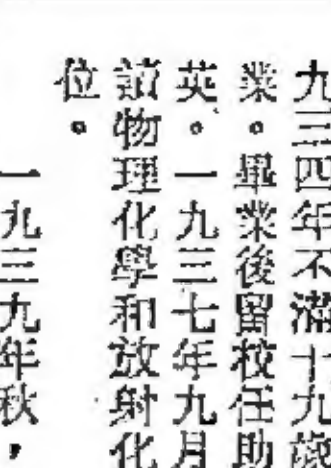 九三四年不滿十九歲
業。畢業後留校任助
英。一九三七年九月
讀物理化學和放射化
位。
一九三九年秋，